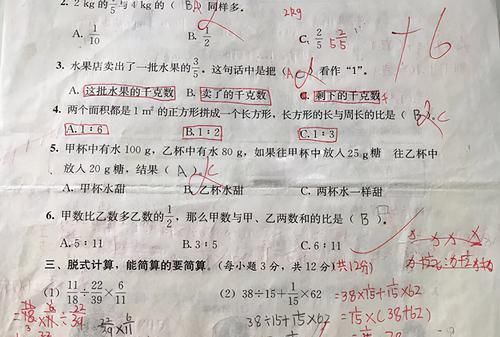 2. 2 kg的1/5与4 kg的( B )同样多。
2kg
A. 1/10 B. 1/2 C. 2/5
+6
3. 水果店卖出了一批水果的3/5。这句话中是把( )看作“1”。
A. 这批水果的千克数 B. 卖了的千克数 C. 剩下的千克数
4. 两个面积都是1 m²的正方形拼成一个长方形，长方形的长与周长的比是( B ) C
A. 1∶6 B. 1∶2 C. 1∶3
5. 甲杯中有水100 g，乙杯中有水80 g，如果往甲杯中放入25 g糖 往乙杯中
放入20 g糖，结果( A )
A. 甲杯水甜 B. 乙杯水甜 C. 两杯水一样甜
6. 甲数比乙数多乙数的1/2，那么甲数与甲、乙两数和的比是( B )
A. 5∶11 B. 3∶5 C. 6∶11
三、脱式计算，能简算的要简算。(每小题3分，共12分)(共12分)
(1) 11/18÷22/39×6/11 (2) 38÷15+1/15×62 =38×1/15+1/15×62
38÷15+1/15×62 =1/15×(38+62)